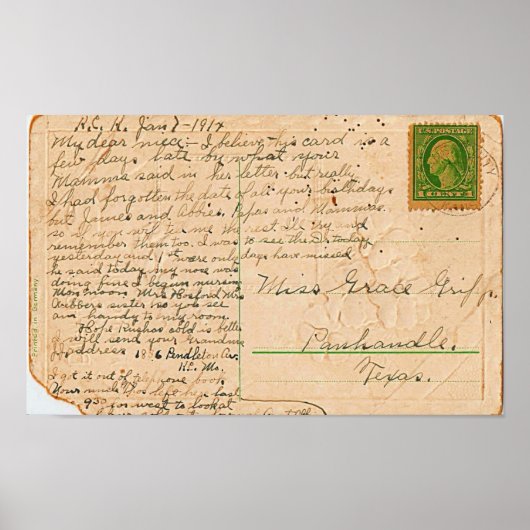 K.C. K. Jan 7 - 1914
My dear niece - I believe this card is a
few days late on what your
Mamma said in her letter but really
I had forgotten the date of all your birthdays
but James and Abbies, Papas and Mammas
so if you will tell me the rest I'll try and
remember them too. I was to see the Dr. today
yesterday and were only days have missed
he said today my nose was
doing fine I begun nursing
Mon noon Mrs Hosford Mrs
sister
am handy to my room.
Hope Hughes cold is better
I will send your Grandma
address 1816 Pendleton Av.
K.C. Mo.
I get it out of telephone book
Your uncle last
9 30 for west to look at
U.S. POSTAGE
1 CENT 1
Miss Grace Griff
Panhandle.
Texas.
Printed in Germany